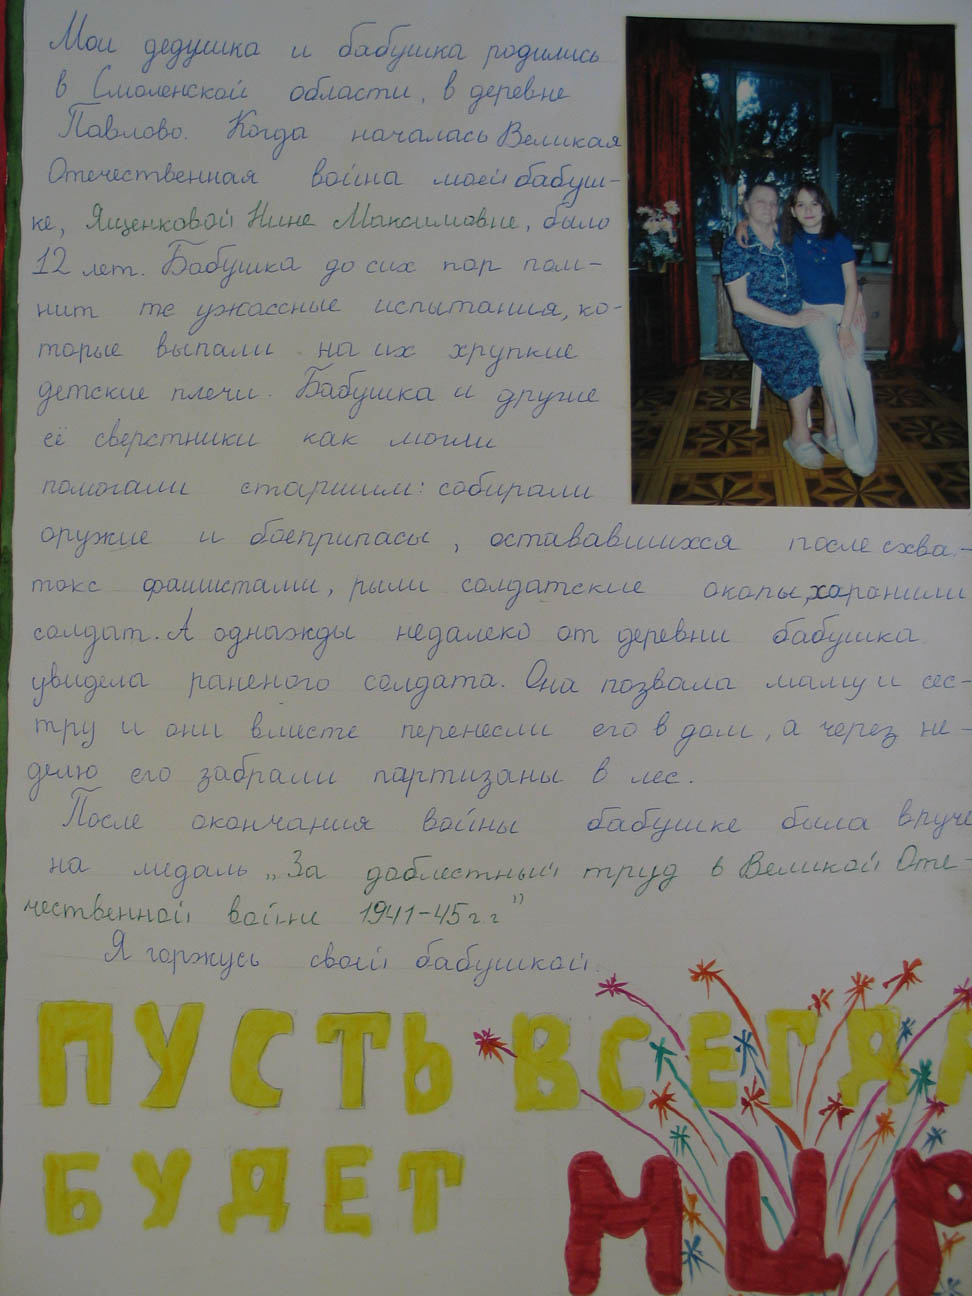 Мои дедушка и бабушка родились
в Смоленской области, в деревне
Павлово. Когда началась Великая
Отечественная война моей бабуш-
ке, Ященковой Нине Максимовне, было
12 лет. Бабушка до сих пор пом-
нит те ужасные испытания, ко-
торые выпали на их хрупкие
детские плечи. Бабушка и другие
её сверстники как могли
помогали старшим: собирали
оружие и боеприпасы, остававшихся после схва-
ток с фашистами, рыли солдатские окопы, харонили
солдат. А однажды недалеко от деревни бабушка
увидела раненого солдата. Она позвала маму и сес-
тру и они вместе перенесли его в дом, а через не-
делю его забрали партизаны в лес.
После окончания войны бабушке была вруче
на медаль „За доблестный труд в Великой Оте-
чественной войне 1941-45г.г"
Я горжусь своей бабушкой.
ПУСТЬ ВСЕГДА
БУДЕТ МИР